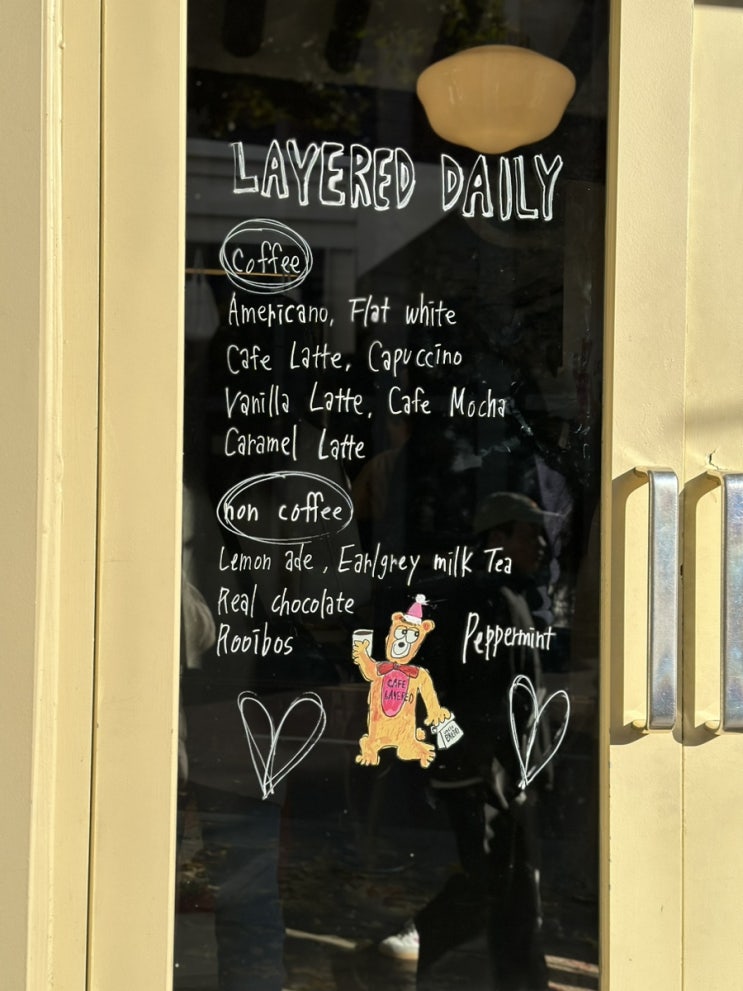 LAYERED DAILY
coffee
Americano, Flat white
Cafe Latte, Capuccino
Vanilla Latte, Cafe Mocha
Caramel Latte
non coffee
Lemon ade, Earlgrey milk Tea
Real chocolate
Rooibos
Peppermint
CAFE
LAYERED